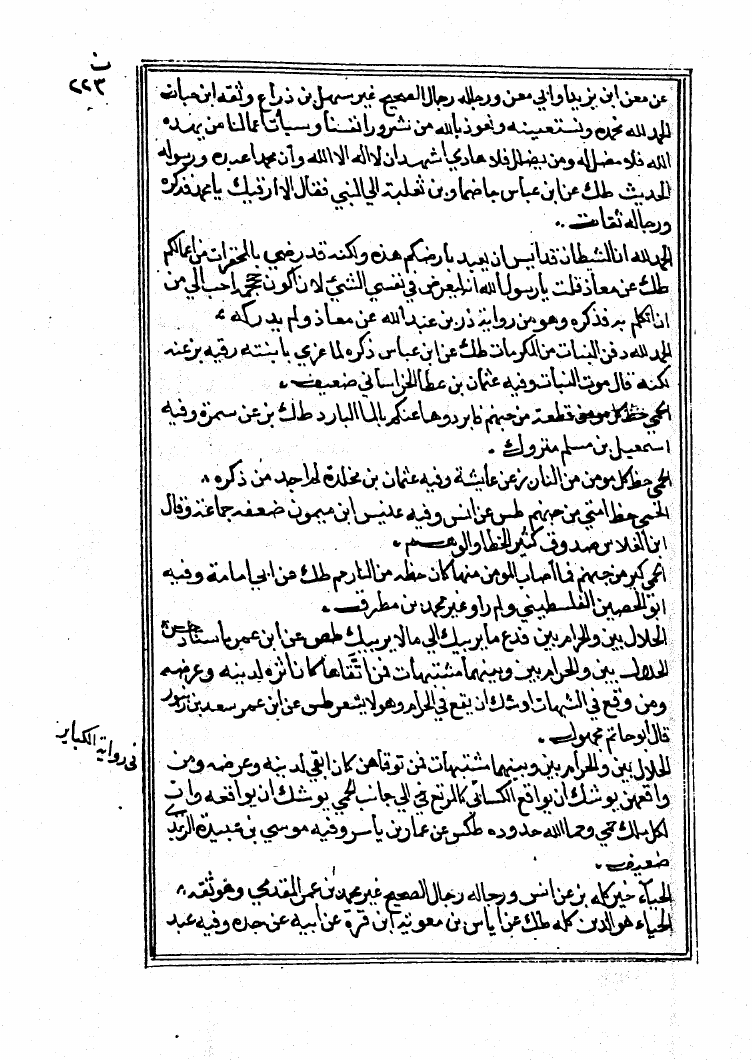 ن
٢٢٣
عن معن ابن يزيد او ابي معن ورجاله رجال الصحيح غير سهيل بن ذراع وثقه ابن حبان
الحمد لله نحمده ونستعينه ونعوذ بالله من شرور انفسنا وسيأت اعمالنا من يهده
الله فلا مضل له ومن يضلل فلا هادي اشهد ان لا اله الا الله وأن محمدا عبده ورسوله
الحديث طك عن ابن عباس جا ضماد بن ثعلبة الي النبي فقال الا ارقيك يا محمد فذكره
ورجاله ثقات
الحمد لله ان الشطان قد ايس ان يعبد بارضكم هذه ولكنه قد رضي بالمحقرات من اعمالكم
طك عن معاذ قلت يا رسول الله انه ليعرض في نفسي الشئ لان اكون حممه احب الي من
ان اتكلم به فذكره وهو من رواية ذر بن عبد الله عن معاذ ولم يدركه
الحمد لله دفن البنات من المكرمات طك عن ابن عباس ذكره لما عزي بابنته رقيه بز عنه
لكنه قال موت البنات وفيه عثمان بن عطا الخراساني ضعيف
الحمي قطعة من جهنم فابردوها عنكم بالما البارد طك بز عن سمرة وفيه
اسمعيل بن مسلم متروك
الحمي حظ كل مومن من النار بز عن عايشة وفيه عثمان بن مخلد لم اجد من ذكره
الحمي حظ امتي من جهنم طس عن انس وفيه عنبس ابن ميمون ضعفه جماعة وقال
ابن الفلاس صدوق كثير الخطا والوهم
الحمي كير من جهنم فما أصاب المومن منها كان حظه من النار حم طك عن ابي امامة وفيه
ابو الحصين الفلسطيني ولم راو غير محمد بن مطرف
الحلال بين والحرام بين فدع ما يريبك الي ما لا يريبك طص عن ابن عمر باسناد حسن
الحلال بين والحرام بين وبينهما مشتبهات فمن اتقاها كان انزه لدينه وعرضه
ومن وقع في الشبهات اوشك ان يقع في الحرام وهو لا يشعر طس عن ابن عمر سعد بن زنبور
قال أبو حاتم مجهول
الحلال بين والحرام بين وبينهما مشتبهات فمن توقاهن كان اتقي لدينه وعرضه ومن
واقعهن يوشك ان يواقع الكبائر كالمرتع الي جانب الحمي يوشك ان يواقعه وان
لكل ملك حمي وحما الله حدوده طكس عن عمار بن ياسر وفيه موسي بن عبيدة الربذي
ضعيف
الحياء خير كله بز عن انس ورجاله رجال الصحيح غير محمد بن عمر المقدمي وهو ثقه
الحياء هو الدين كله طك عن اياس بن معوية ابن قرة عن ابيه عن جده وفيه عبد
في رواية الكباير